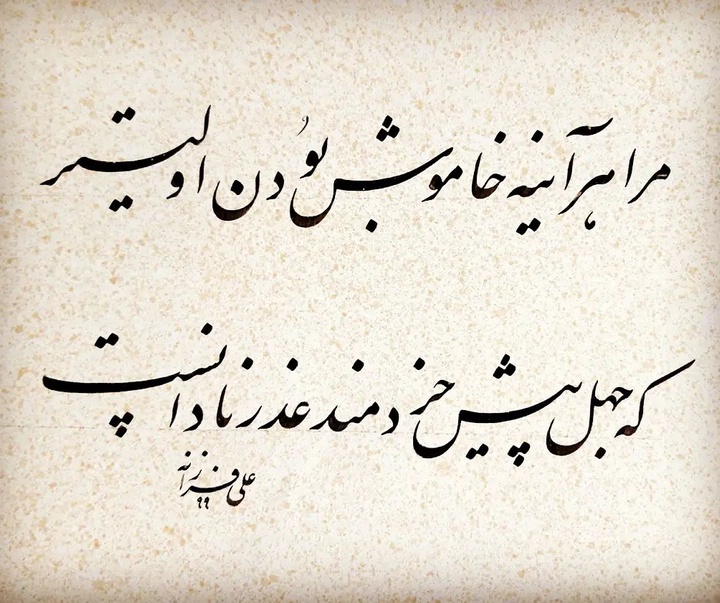 مرا هر آینه خاموش بُودن اولیتر
که جهل پیش خردمند عذر نادانست
علی فرزانه
۹۹